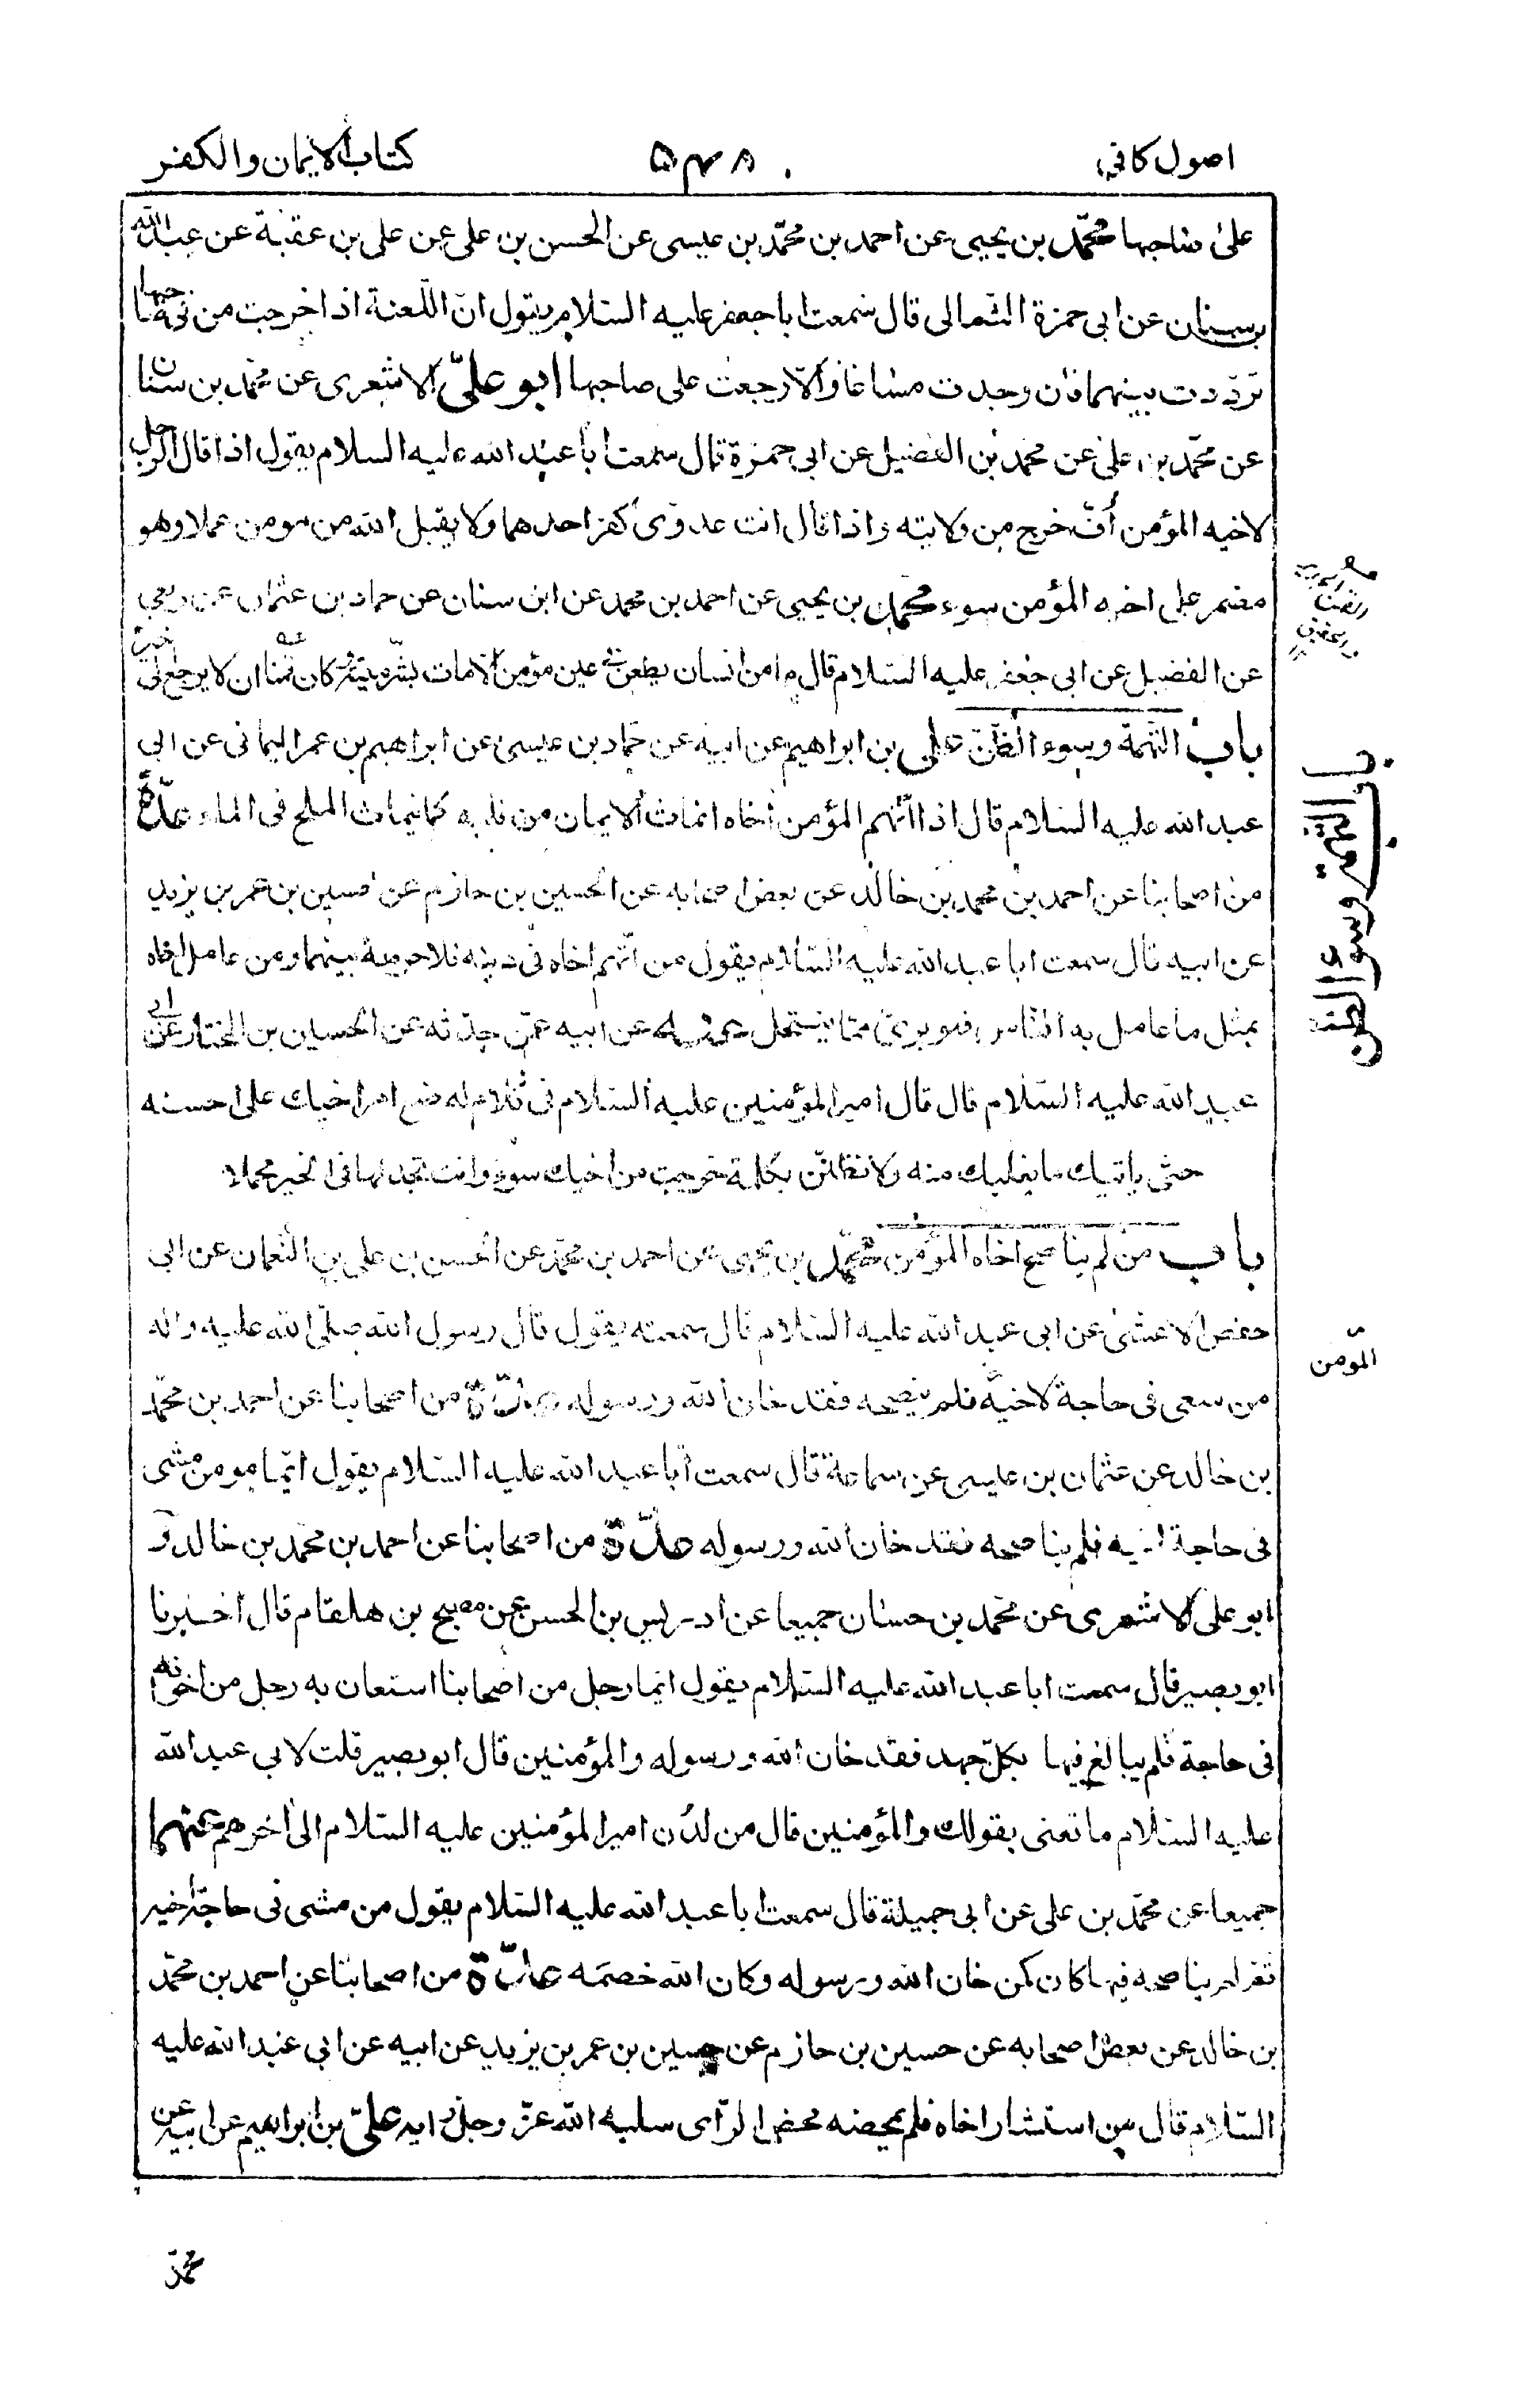 اصول كافي
۵۴۸
كتاب الايمان والكفر
على صاحبها محمّد بن يحيى عن احمد بن محمّد بن عيسى عن الحسن بن على عن على بن عقبة عن عبد الله
بن سنان عن ابى حمزة الثمالى قال سمعت ابا جعفر عليه السّلام يقول انّ اللّعنة اذا خرجت من فى صاحبها
تردّدت بينهما فان وجدت مساغا والّا رجعت على صاحبها ابو علىّ الاشعرى عن محمّد بن سنان
عن محمّد بن على عن محمّد بن الفضيل عن ابى حمزة قال سمعت ابا عبد الله عليه السلام يقول اذا قال الرجل
لاخيه المؤمن اُفّ خرج من ولايته واذا قال انت عدوّى كفر احدهما ولا يقبل الله من مومن عملا وهو
مضمر على اخيه المؤمن سوء محمّد بن يحيى عن احمد بن محمد عن ابن سنان عن حماد بن عثمان عن ربعى
عن الفضيل عن ابى جعفر عليه السّلام قال ما من انسان يطعن فى عين مؤمن الّا مات بشرّ ميتة وكان قمنا ان لا يرجع الى خير
باب التّهمة وسوء الظّنّ على بن ابراهيم عن ابيه عن حمّاد بن عيسى عن ابراهيم بن عمر اليمانى عن ابى
عبد الله عليه السّلام قال اذا اتّهم المؤمن اخاه انماث الايمان من قلبه كما ينماث الملح فى الماء عدّة
من اصحابنا عن احمد بن محمد بن خالد عن بعض اصحابه عن الحسين بن حازم عن حسين بن عمر بن يزيد
عن ابيه قال سمعت ابا عبد الله عليه السّلام يقول من اتّهم اخاه فى دينه فلا حرمة بينهما ومن عامل اخاه
بمثل ما عامل به النّاس فهو برئ ممّا ينتحل عنه عن ابيه عمّن حدّثه عن الحسين بن المختار عن ابى
عبد الله عليه السّلام قال قال امير المؤمنين عليه السّلام فى كلام له ضع امر اخيك على احسنه
حتى ياتيك ما يغلبك منه ولا تظنّنّ بكلمة خرجت من اخيك سوء وانت تجد لها فى الخير محملا
باب من لم يناصح اخاه المؤمن محمّد بن يحيى عن احمد بن محمّد عن الحسن بن على بن النّعمان عن ابى
حفص الاعشى عن ابى عبد الله عليه السّلام قال سمعته يقول قال رسول الله صلّى الله عليه واله
من سعى فى حاجة لاخيه فلم ينصحه فقد خان الله ورسوله عدّة من اصحابنا عن احمد بن محمّد
بن خالد عن عثمان بن عيسى عن سماعة قال سمعت ابا عبد الله عليه السّلام يقول ايّما مومن مشى
فى حاجة اخيه فلم يناصحه فقد خان الله ورسوله عدّة من اصحابنا عن احمد بن محمّد بن خالد و
ابو على الاشعرى عن محمّد بن حسّان جميعا عن ادريس بن الحسن عن مصبح بن هلقام قال اخبرنا
ابو بصير قال سمعت ابا عبد الله عليه السّلام يقول ايّما رجل من اصحابنا استعان به رجل من اخوانه
فى حاجة فلم يبالغ فيها بكلّ جهد فقد خان الله ورسوله والمؤمنين قال ابو بصير قلت لابى عبد الله
عليه السّلام ما تعنى بقولك والمؤمنين قال من لدُن امير المؤمنين عليه السّلام الى اخرهم عنهما
جميعا عن محمّد بن على عن ابى جميلة قال سمعت ابا عبد الله عليه السّلام يقول من مشى فى حاجة اخيه
ثمّ لم يناصحه فيها كان كمن خان الله ورسوله وكان الله خصمه عدّة من اصحابنا عن احمد بن محمّد
بن خالد عن بعض اصحابه عن حسين بن حازم عن حسين بن عمر بن يزيد عن ابيه عن ابى عبد الله عليه
السّلام قال من استشار اخاه فلم يمحضه محض الرّاى سلبه الله عزّ وجلّ رايه علىّ بن ابراهيم عن ابيه عن
باب التّهمة وسوء الظن
المؤمن
محمّد